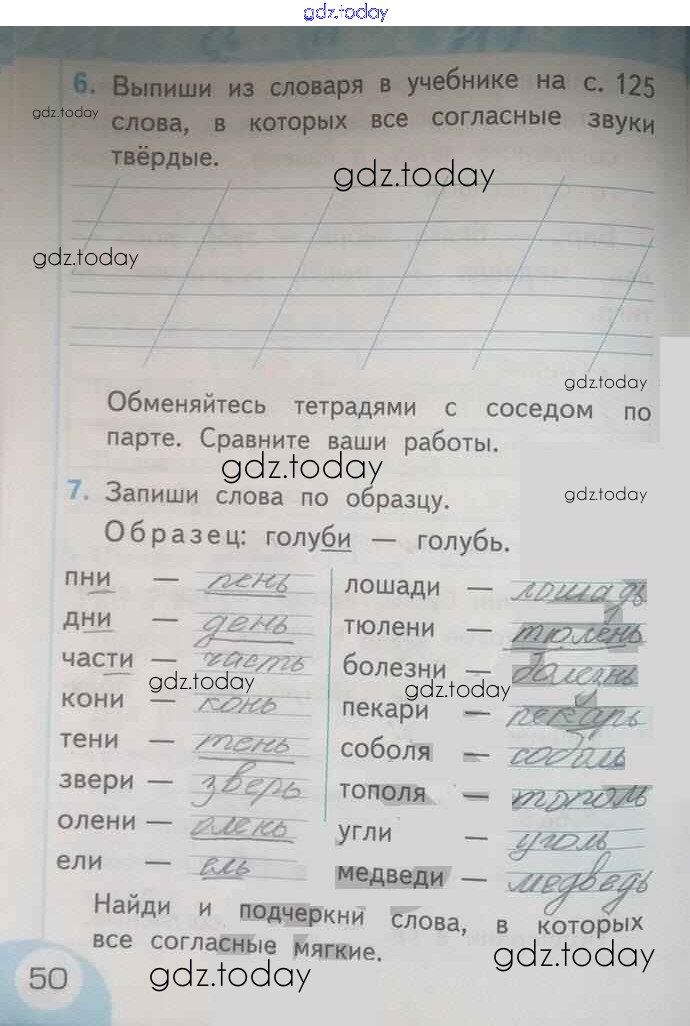 gdz.today
6. Выпиши из словаря в учебнике на с. 125
gdz.today
слова, в которых все согласные звуки
твёрдые.
gdz.today
gdz.today
gdz.today
Обменяйтесь тетрадями с соседом по
парте. Сравните ваши работы.
gdz.today
7. Запиши слова по образцу.
gdz.today
Образец: голуби — голубь.
пни — пень
дни — день
части — часть
gdz.today
кони — конь
тени — тень
звери — зверь
олени — олень
ели — ель
лошади — лошадь
тюлени — тюлень
болезни — болезнь
gdz.today
пекари — пекарь
соболя — соболь
тополя — тополь
угли — уголь
медведи — медведь
Найди и подчеркни слова, в которых
все согласные мягкие.
gdz.today
gdz.today
50